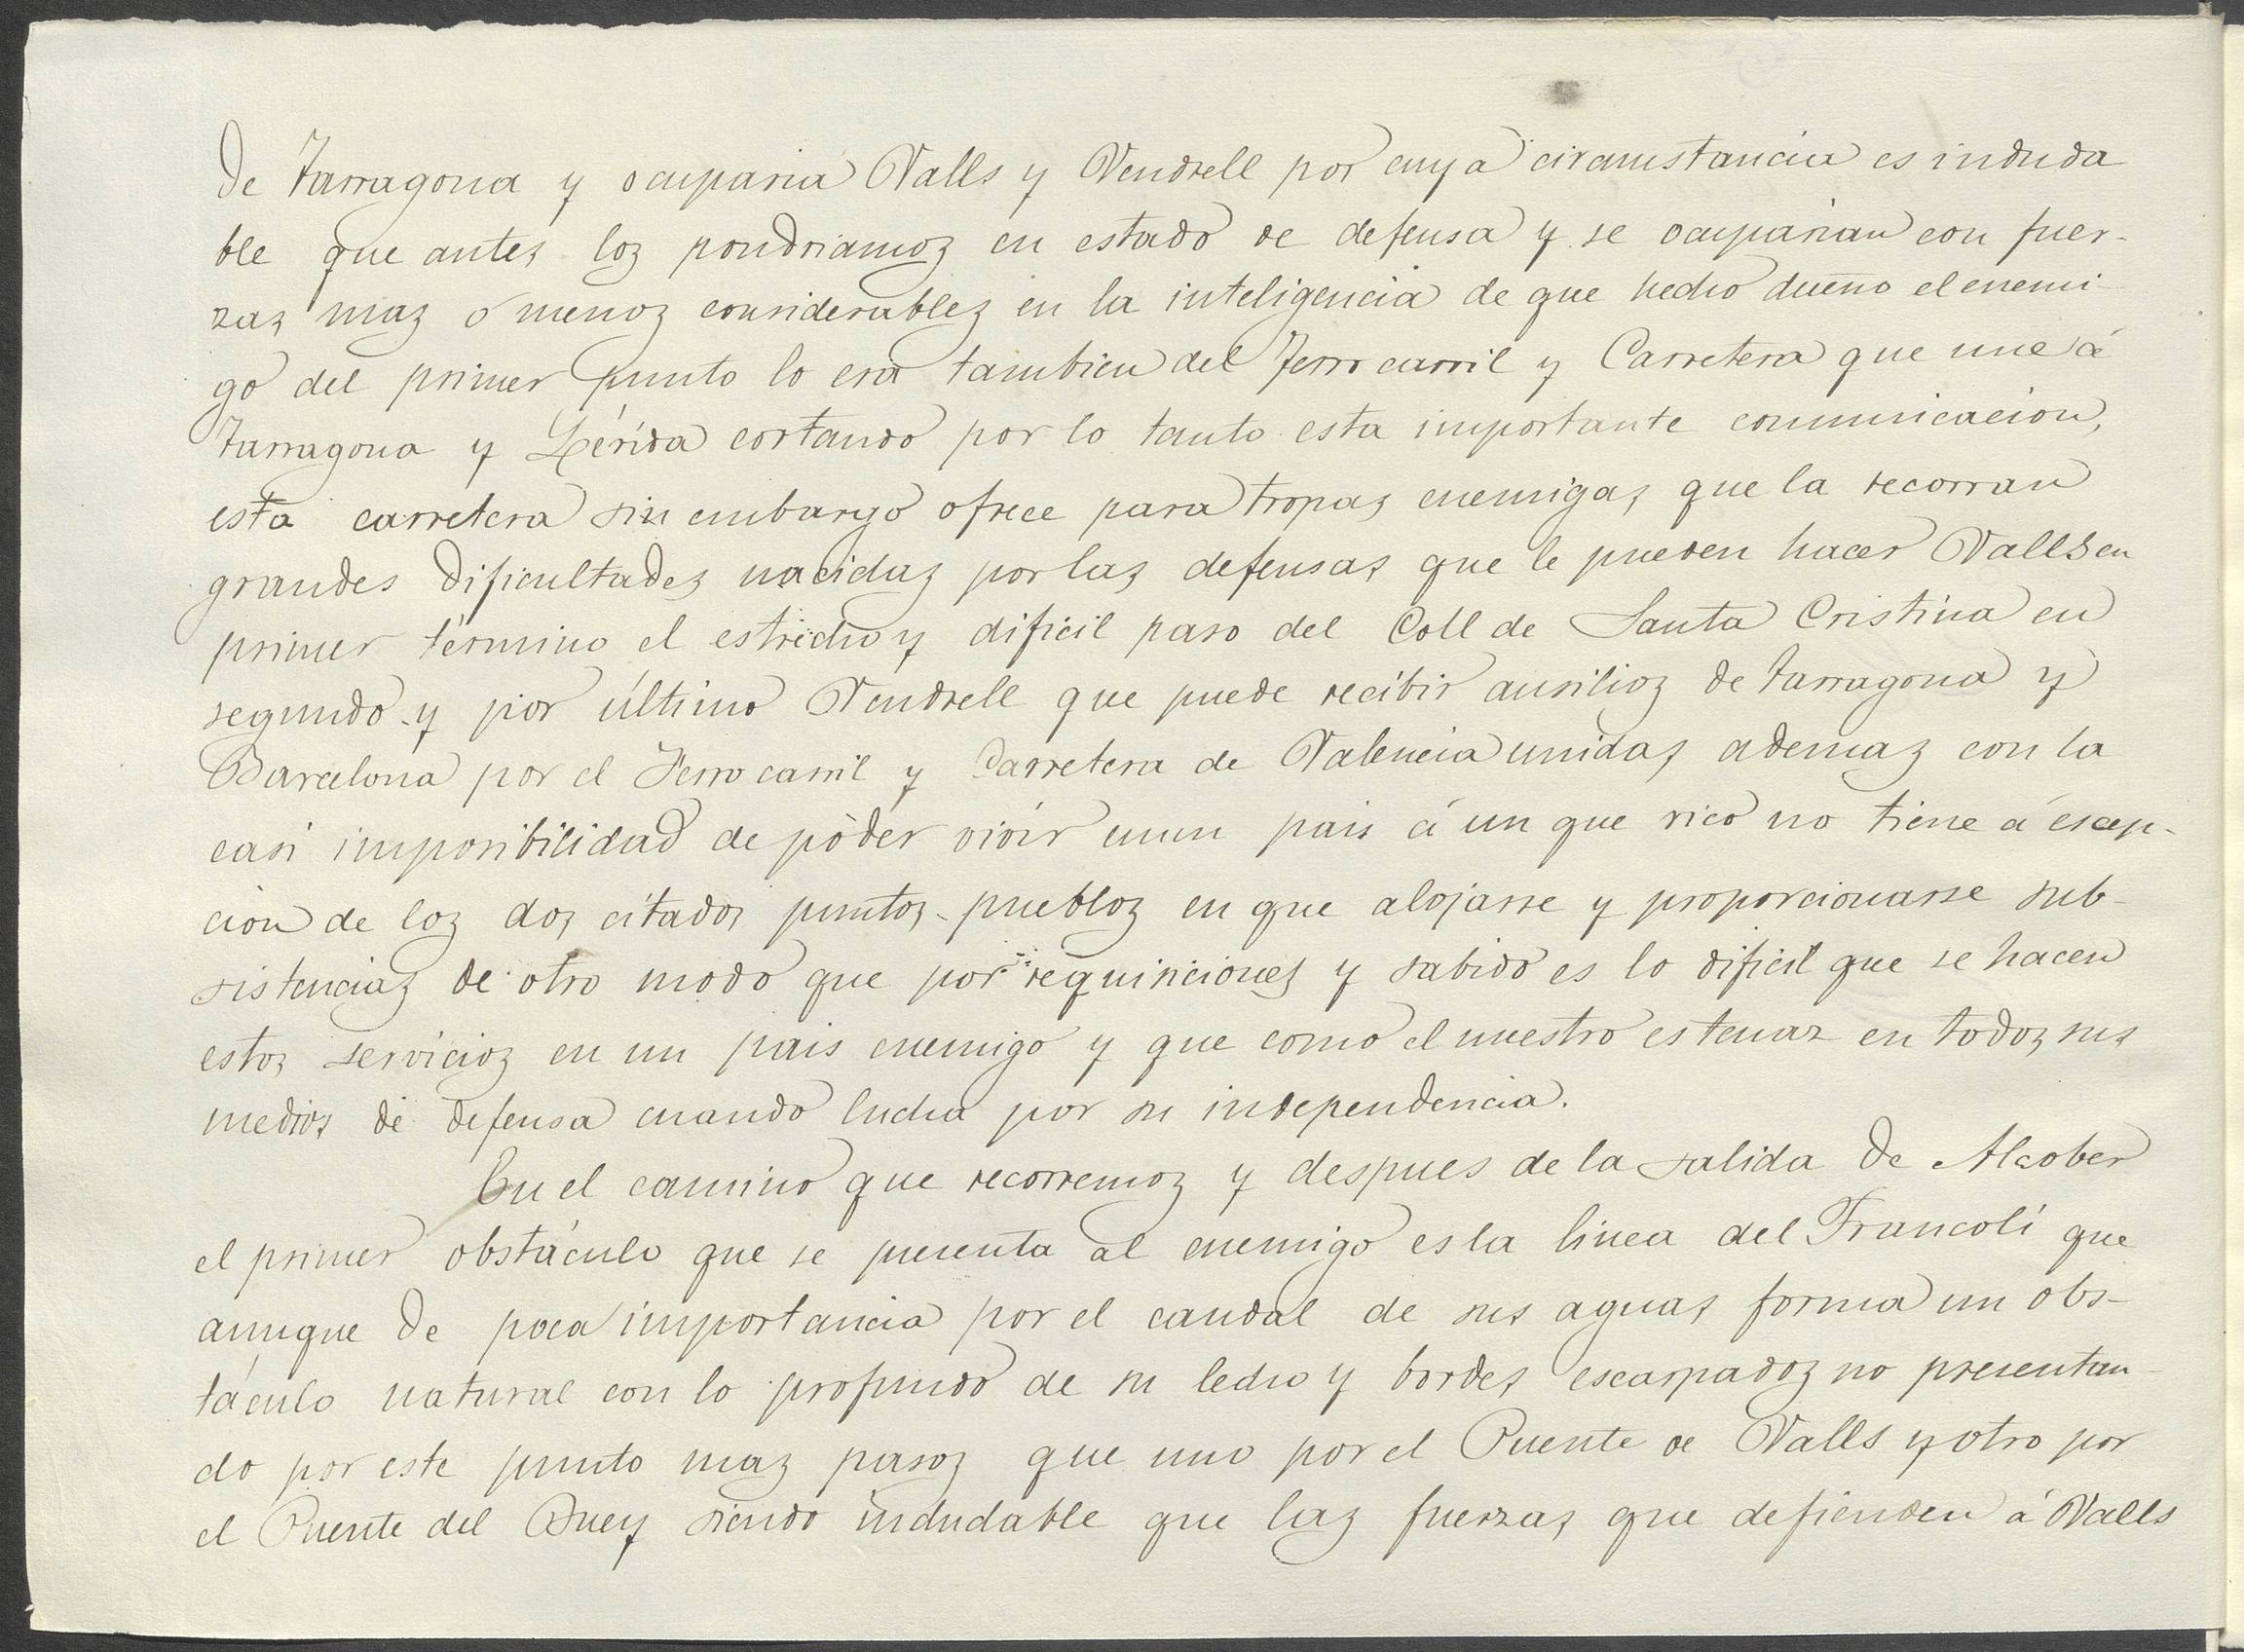 de Tarragona y ocuparia Valls y Vendrell por cuya circunstancia es induda
ble que antes los pondriamos en estado de defensa y se ocuparian con fuer-
zas mas ó menos considerables en la inteligencia de que hecho dueño el enemi
go del primer punto lo era tambien del Ferro carril y Carretera que une á
Tarragona y Lérida cortando por lo tanto esta importante comunicacion,
esta carretera sin embargo ofrece para tropas enemigas que la recorran
grandes dificultades nacidas por las defensas que le pueden hacer Valls en
primer término el estrecho y dificil paso del Coll de Santa Cristina en
segundo y por último Vendrell que puede recibir ausilios de Tarragona y
Barcelona por el Ferro carril y Carretera de Valencia unidas ademas con la
casi imposibilidad de poder vivir en un pais á un que rico no tiene á escep-
cion de los dos citados puntos pueblos en que alojarse y proporcionarse sub-
sistencias de otro modo que por requisiciones y sabido es lo dificil que se hacen
estos servicios en un pais enemigo y que como el nuestro es tenaz en todos sus
medios de defensa cuando lucha por su independencia.
En el camino que recorremos y despues de la salida de Alcober
el primer obstáculo que se presenta al enemigo es la linea del Francolí que
aunque de poca importancia por el caudal de sus aguas forma un obs-
táculo natural con lo profundo de su lecho y bordes escarpados no presentan
do por este punto mas pasos que uno por el Puente de Valls y otro por
el Puente del Buey siendo indudable que las fuerzas que defienden á Valls